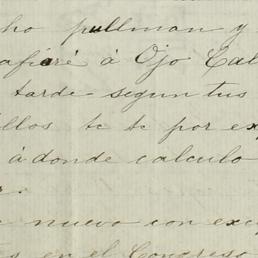 ho pullman y
afiaré á Ojo Cal
tarde segun tus
llos tc tc por ex
á donde calculo
r.
e nuevo con exc
en el Congreso